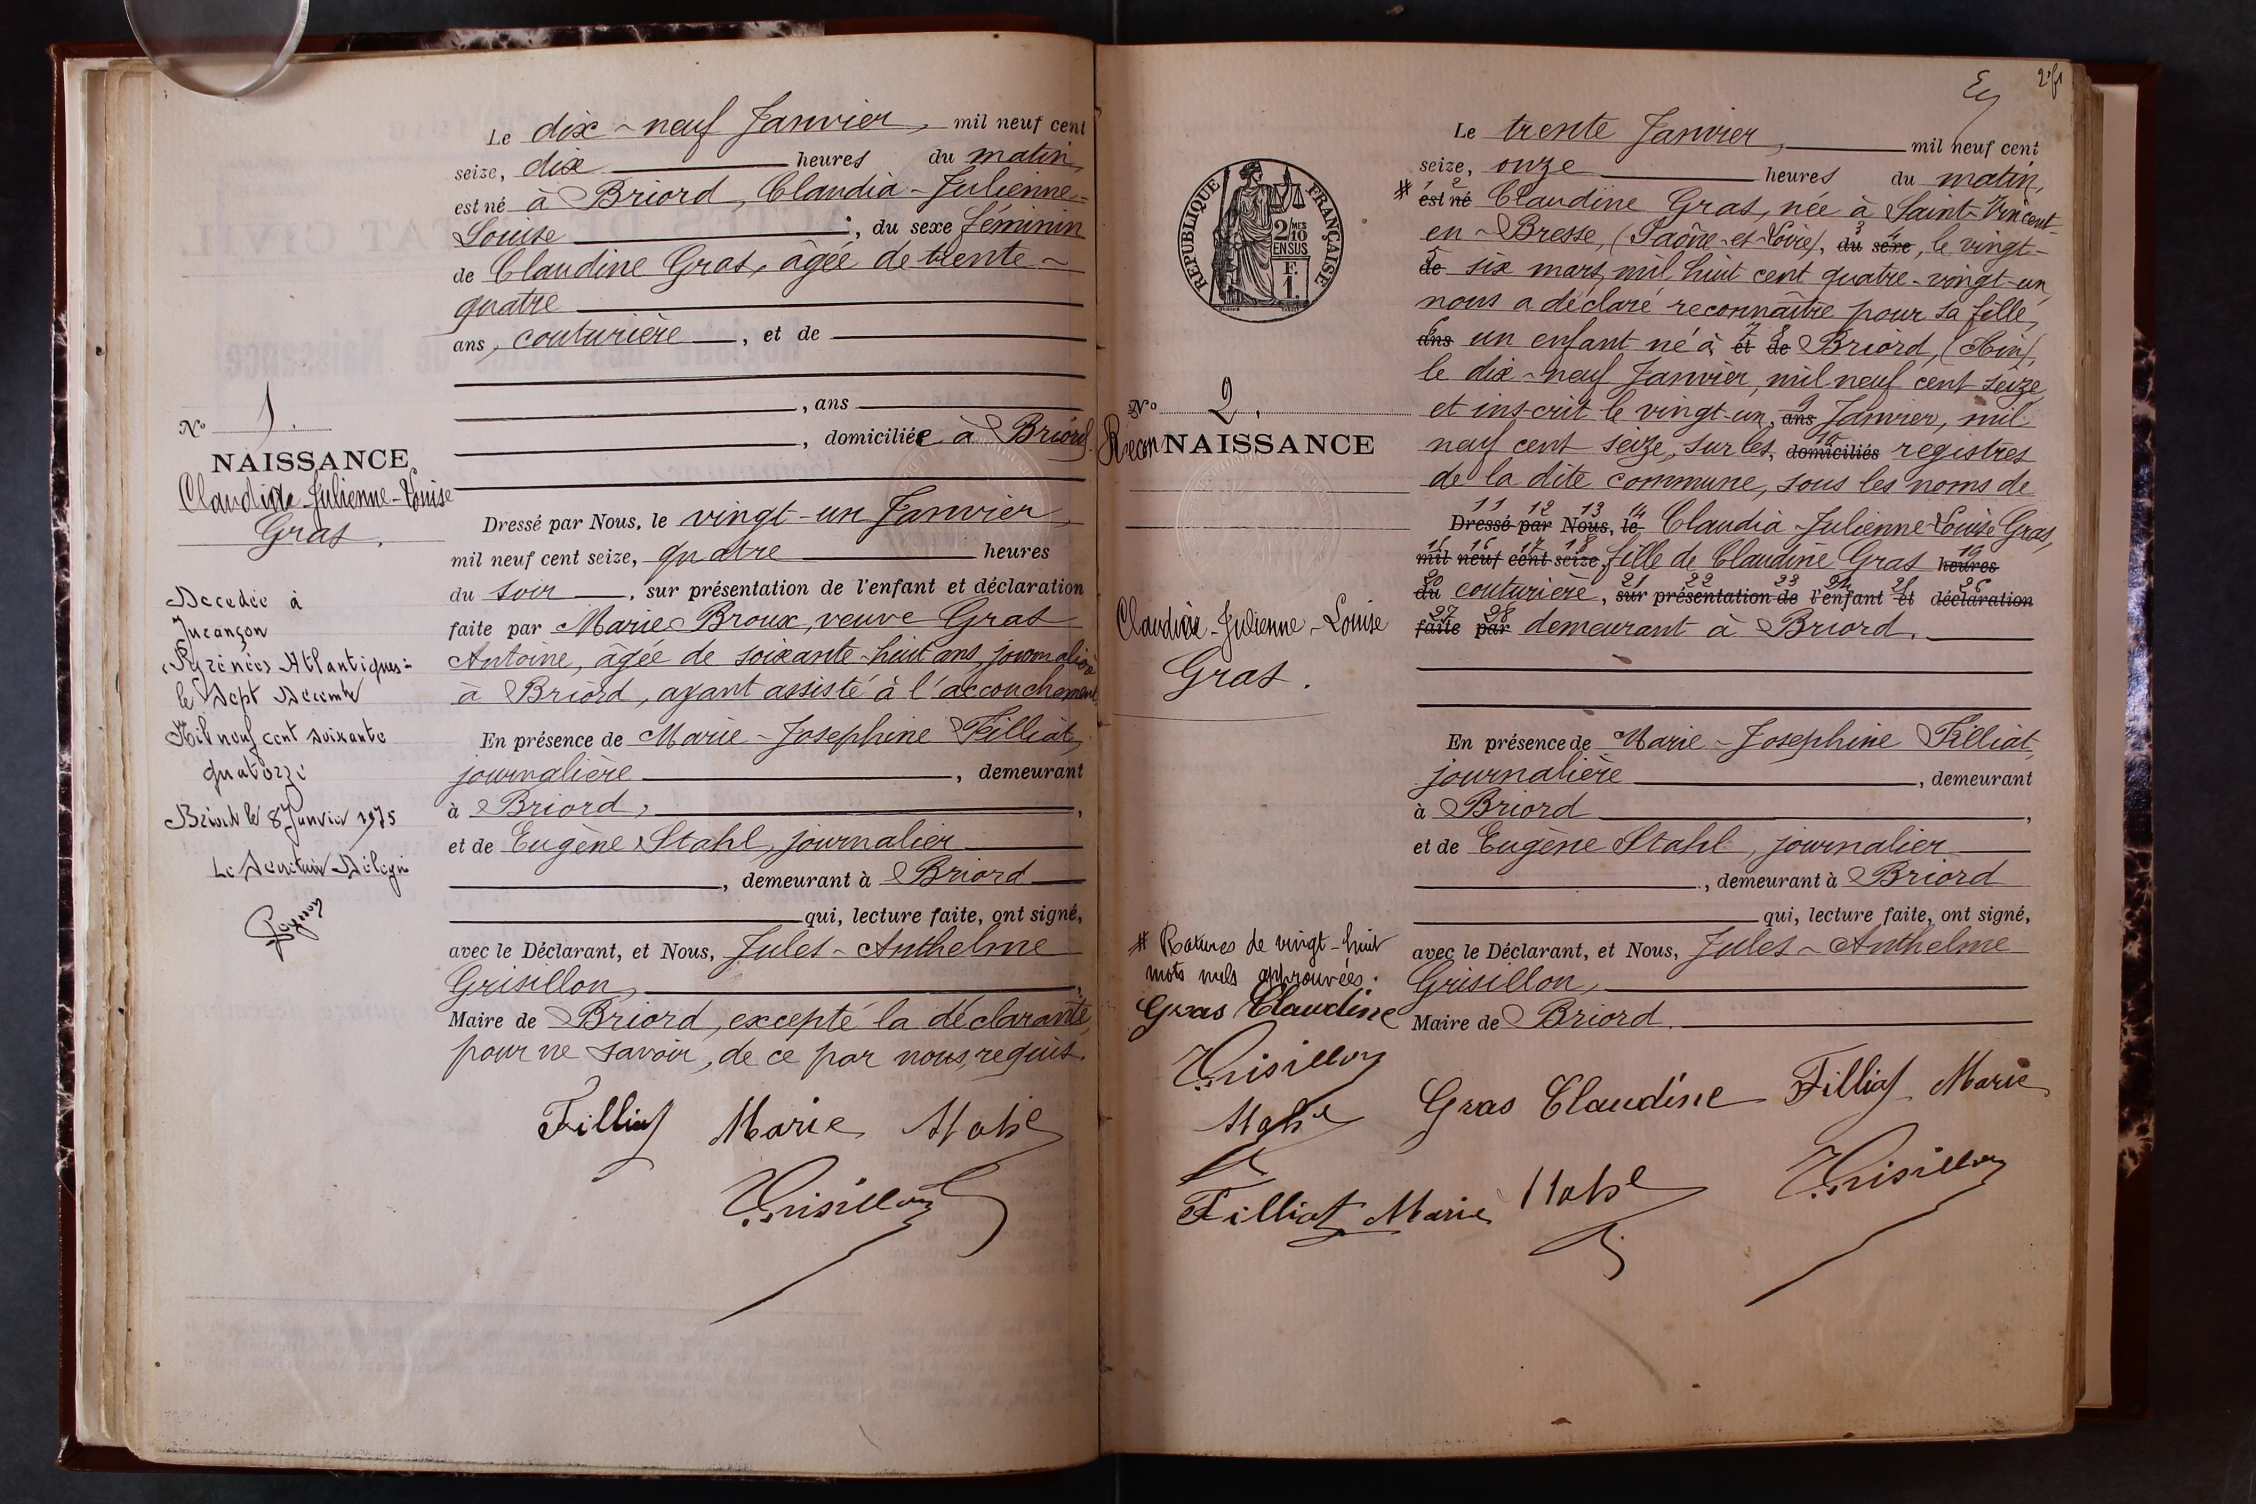 Le dix-neuf Janvier, mil neuf cent
seize, dix heures du matin,
est né à Briord, Claudia-Julienne-
Louise, du sexe féminin
de Claudine Gras, âgée de trente-
quatre
ans, couturière, et de
, ans
, domiciliée à Briord.
Dressé par Nous, le vingt-un Janvier
mil neuf cent seize, quatre heures
du soir, sur présentation de l'enfant et déclaration
faite par Marie Broux, veuve Gras
Antoine, âgée de soixante-huit ans, journalière
à Briord, ayant assisté à l'accouchement.
En présence de Marie-Josephine Filliat,
journalière, demeurant
à Briord,
et de Eugène Stahl, journalier
, demeurant à Briord
qui, lecture faite, ont signé,
avec le Déclarant, et Nous, Jules-Anthelme
Grisillon,
Maire de Briord, excepté la déclarante,
pour ne savoir, de ce par nous, requis.
Filliat Marie Stahl
Grisillon
No 1.
NAISSANCE
Claudia Julienne-Louise
Gras.
Decedée à
Jurançon
(Pyrénées Atlantiques)
le Sept Decembre
Mil neuf cent soixante
quatorze
Briord le 8 Janvier 1975
Le Secrétaire Délégué
2 f1
REPUBLIQUE FRANÇAISE
2/10 MES
EN SUS
F.
1.
Le trente Janvier, mil neuf cent
seize, onze heures du matin,
# 1 2
est né Claudine Gras, née à Saint-Vincent-
en-Bresse, (Saône-et-Loire), 3 4 du sexe, le vingt-
5 de six mars, mil huit cent quatre-vingt-un,
nous a déclaré reconnaître pour sa fille,
6 ans un enfant né à, 7 8 et de Briord, (Ain),
le dix-neuf Janvier, mil neuf cent seize
et inscrit le vingt-un, 9 ans Janvier, mil
neuf cent seize, sur les, 10 domiciliés registres
de la dite commune, sous les noms de
11 12 13 14
Dressé par Nous, le Claudia-Julienne-Louise Gras,
15 16 17 18 19
mil neuf cent seize, fille de Claudine Gras heures
20 21 22 23 24 25 26
du couturière, sur présentation de l'enfant et déclaration
27 28
faite par demeurant à Briord.
En présence de Marie-Josephine Filliat,
journalière, demeurant
à Briord,
et de Eugène Stahl, journalier
, demeurant à Briord
qui, lecture faite, ont signé,
avec le Déclarant, et Nous, Jules-Anthelme
Grisillon,
Maire de Briord.
Gras Claudine Filliat Marie
Stahl Grisillon
No 2.
Recon NAISSANCE
Claudia-Julienne-Louise
Gras.
# Ratures de vingt-huit
mots nuls approuvées.
Gras Claudine
Grisillon
Stahl
Filliat Marie